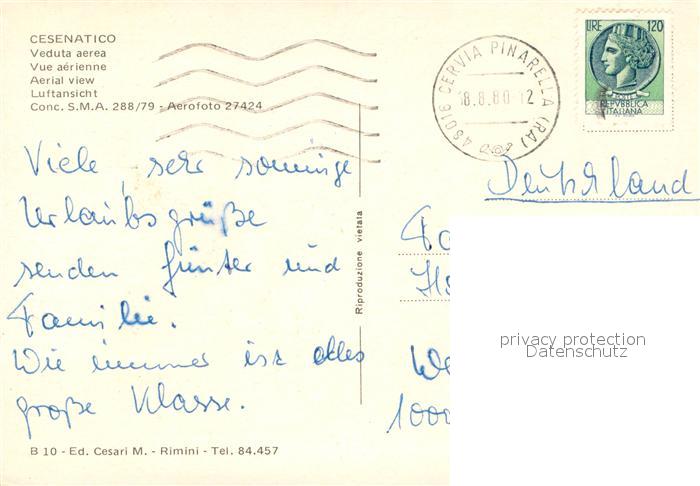 CESENATICO
Veduta aerea
Vue aérienne
Aerial view
Luftansicht
Conc. S.M.A. 288/79 - Aerofoto 27424
48016 CERVIA PINARELLA (RA)
8.8.80 12
LIRE 120
POSTE
REPVBBLICA
ITALIANA
Viele, sehr sonnige
Urlaubsgrüße
senden Günter und
Familie.
Wie immer ist alles
große Klasse.
Deutschland
Riproduzione vietata
privacy protection
Datenschutz
B 10 - Ed. Cesari M. - Rimini - Tel. 84.457